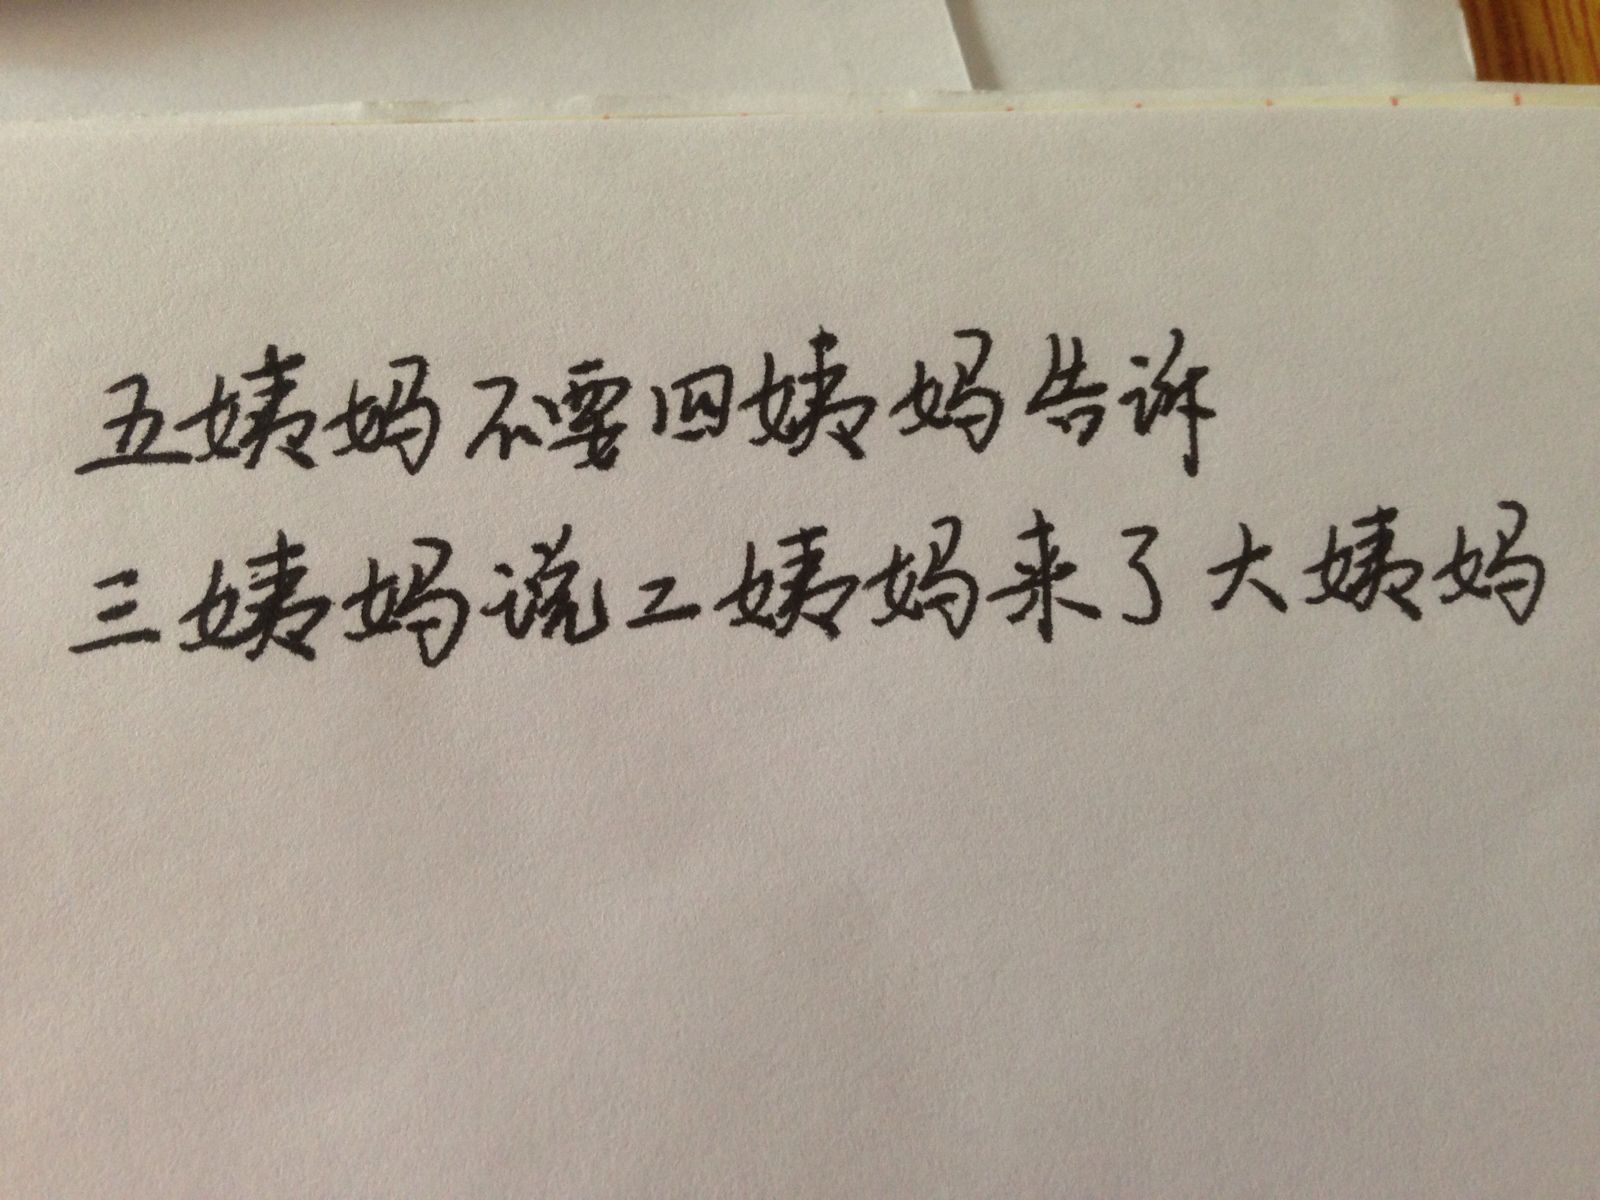 五姨妈不要四姨妈告诉
三姨妈说二姨妈来了大姨妈